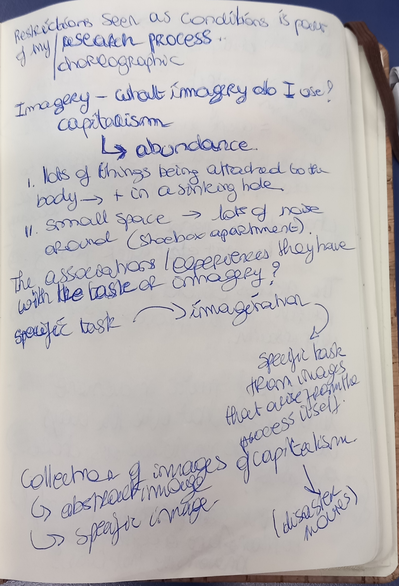 Restrictions seen as conditions is part
of my / research process..
/ choreographic
Imagery - what imagery do I use?
capitalism
↳ abundance.
I. lots of things being attached to the
body → + in a sinking hole
II. small space → lots of noise
around (shoebox apartment).
The associations / experiences they have
with the task or imagery?
specific task → imagination
specific task
from images
that arise from the
process itself.
Collection of images of capitalism.
↳ abstract image
↳ specific image
(disaster
movies)